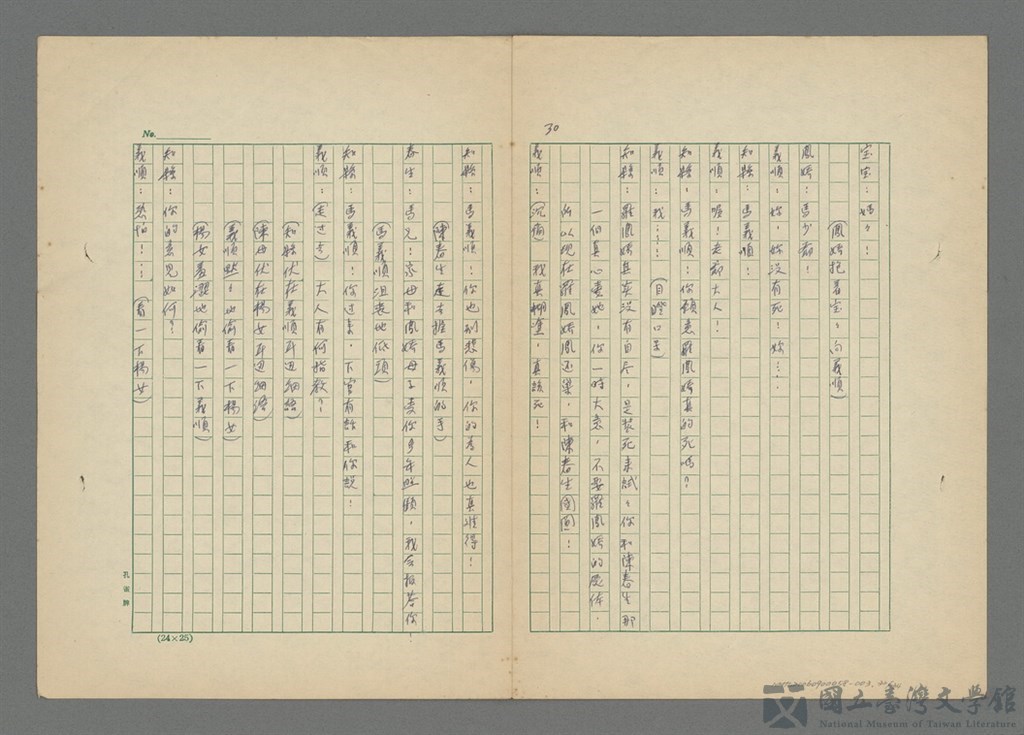 30
宝宝：媽々！
(鳳嬌抱着宝々向義順)
鳳嬌：馬少爺！
義順：妳，妳沒有死！妳……
知縣：馬義順！
義順：喔！老爺大人！
知縣：馬義順！你願意羅鳳嬌真的死嗎？
義順：我……(目瞪口呆)
知縣：羅鳳嬌其实沒有自尽，是裝死来試々你和陳春生那
一個真心愛她，你一時大意，不要羅鳳嬌的屍体，
所以現在羅鳳嬌鳳还巢，和陳春生團圓！
義順：(沉痛)我真糊塗，真該死！
知縣：馬義順！你也別悲傷，你的夫人也真难得！
(陳春生走去握馬義順的手)
春生：馬兄！家母和鳳嬌母子受你多年照顧，我会报答你！
(馬義順沮丧地低頭)
知縣：馬義順！你过来，下官有話和你說！
義順：(走过去)大人有何指教？
(知縣伏在義順耳边細語)
(陳母伏在楊女耳边細語)
(義順點々地偷看一下楊女)
(楊女羞澀地偷看一下義順)
知縣：你的意見如何？
義順：恐怕！……(看一下楊女)
No.
孔雀牌
(24×25)
國立臺灣文學館
National Museum of Taiwan Literature